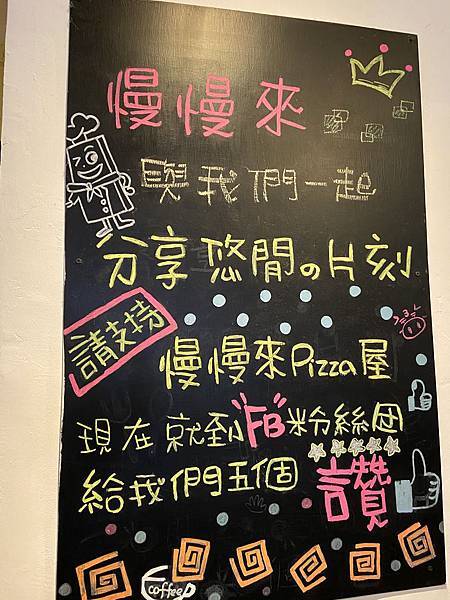 慢慢來
與我們一起
分享悠閒の片刻
請支持
慢慢來Pizza屋
現在就到FB粉絲团
給我們五個讚
coffee